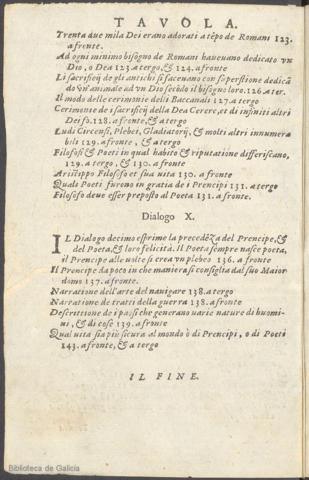 TAVOLA.
Trenta due mila Dei erano adorati a tẽpo de Romani 123.
a fronte.
Ad ogni minimo bisogno de Romani haueuano dedicato vn
Dio, o Dea 123. a tergo, & 124. a fronte
Li sacrificij de gli antichi si faceuano con soperstione dedicã
do vn'animale ad vn Dio secõdo il bisogno loro. 126. a ter.
Il modo delle cerimonie delli Baccanali 127. a tergo
Cerimonie de i sacrificij della Dea Cerere, et di infiniti altri
Dei fo. 128. a fronte, & a tergo
Ludi Circensi, Plebei, Gladiatorij, & molti altri innumera
bili 129. a fronte, & a tergo
Filosofi & Poeti in qual habito & riputatione differiscano,
129. a tergo, & 130. a fronte
Aristippo Filosofo et sua vita 130. a fronte
Quali Poeti furono in gratia de i Prencipi 131. a tergo
Filosofo deue esser preposto al Poeta 131. a fronte.
Dialogo X.
IL Dialogo decimo esprime la precedẽza del Prencipe, &
del Poeta, & loro felicità. Il Poeta sempre nasce poeta,
il Prencipe alle volte si crea vn plebeo 136. a fronte
Il Prencipe da poco in che maniera si consiglia dal suo Maior
domo 137. a fronte.
Narratione dell'arte del nauigare 138. a tergo
Narratione de tratti della guerra 138. a fronte
Descrittione de i paesi che generano uarie nature di huomi
ni, & di cose 139. a fronte
Qual uita sia più sicura al mondo ò di Prencipi, o di Poeti
143. a fronte, & a tergo
IL FINE.
Biblioteca de Galicia